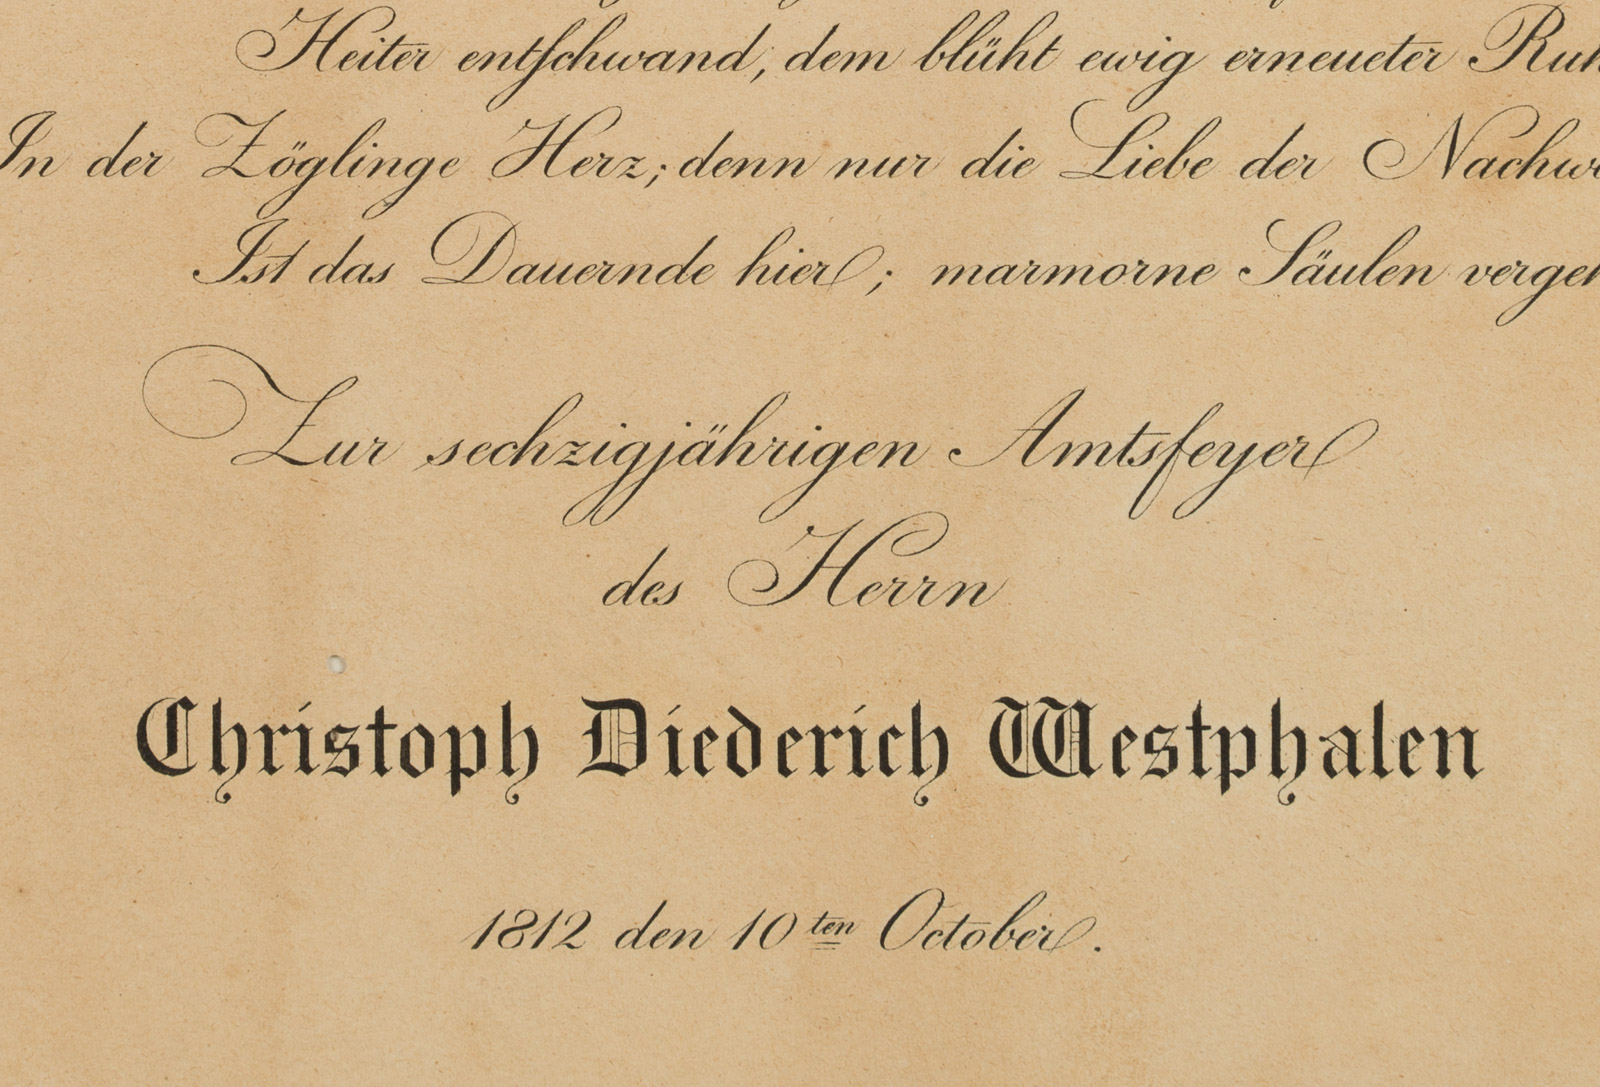 Heiter entſchwand, dem blüht ewig erneueter
In der Zöglinge Herz; denn nur die Liebe der
Ist das Dauernde hier; marmorne Säulen
Zur sechzigjährigen Amtsfeyer
des Herrn
Christoph Diederich Westphalen
1812 den 10ten October.